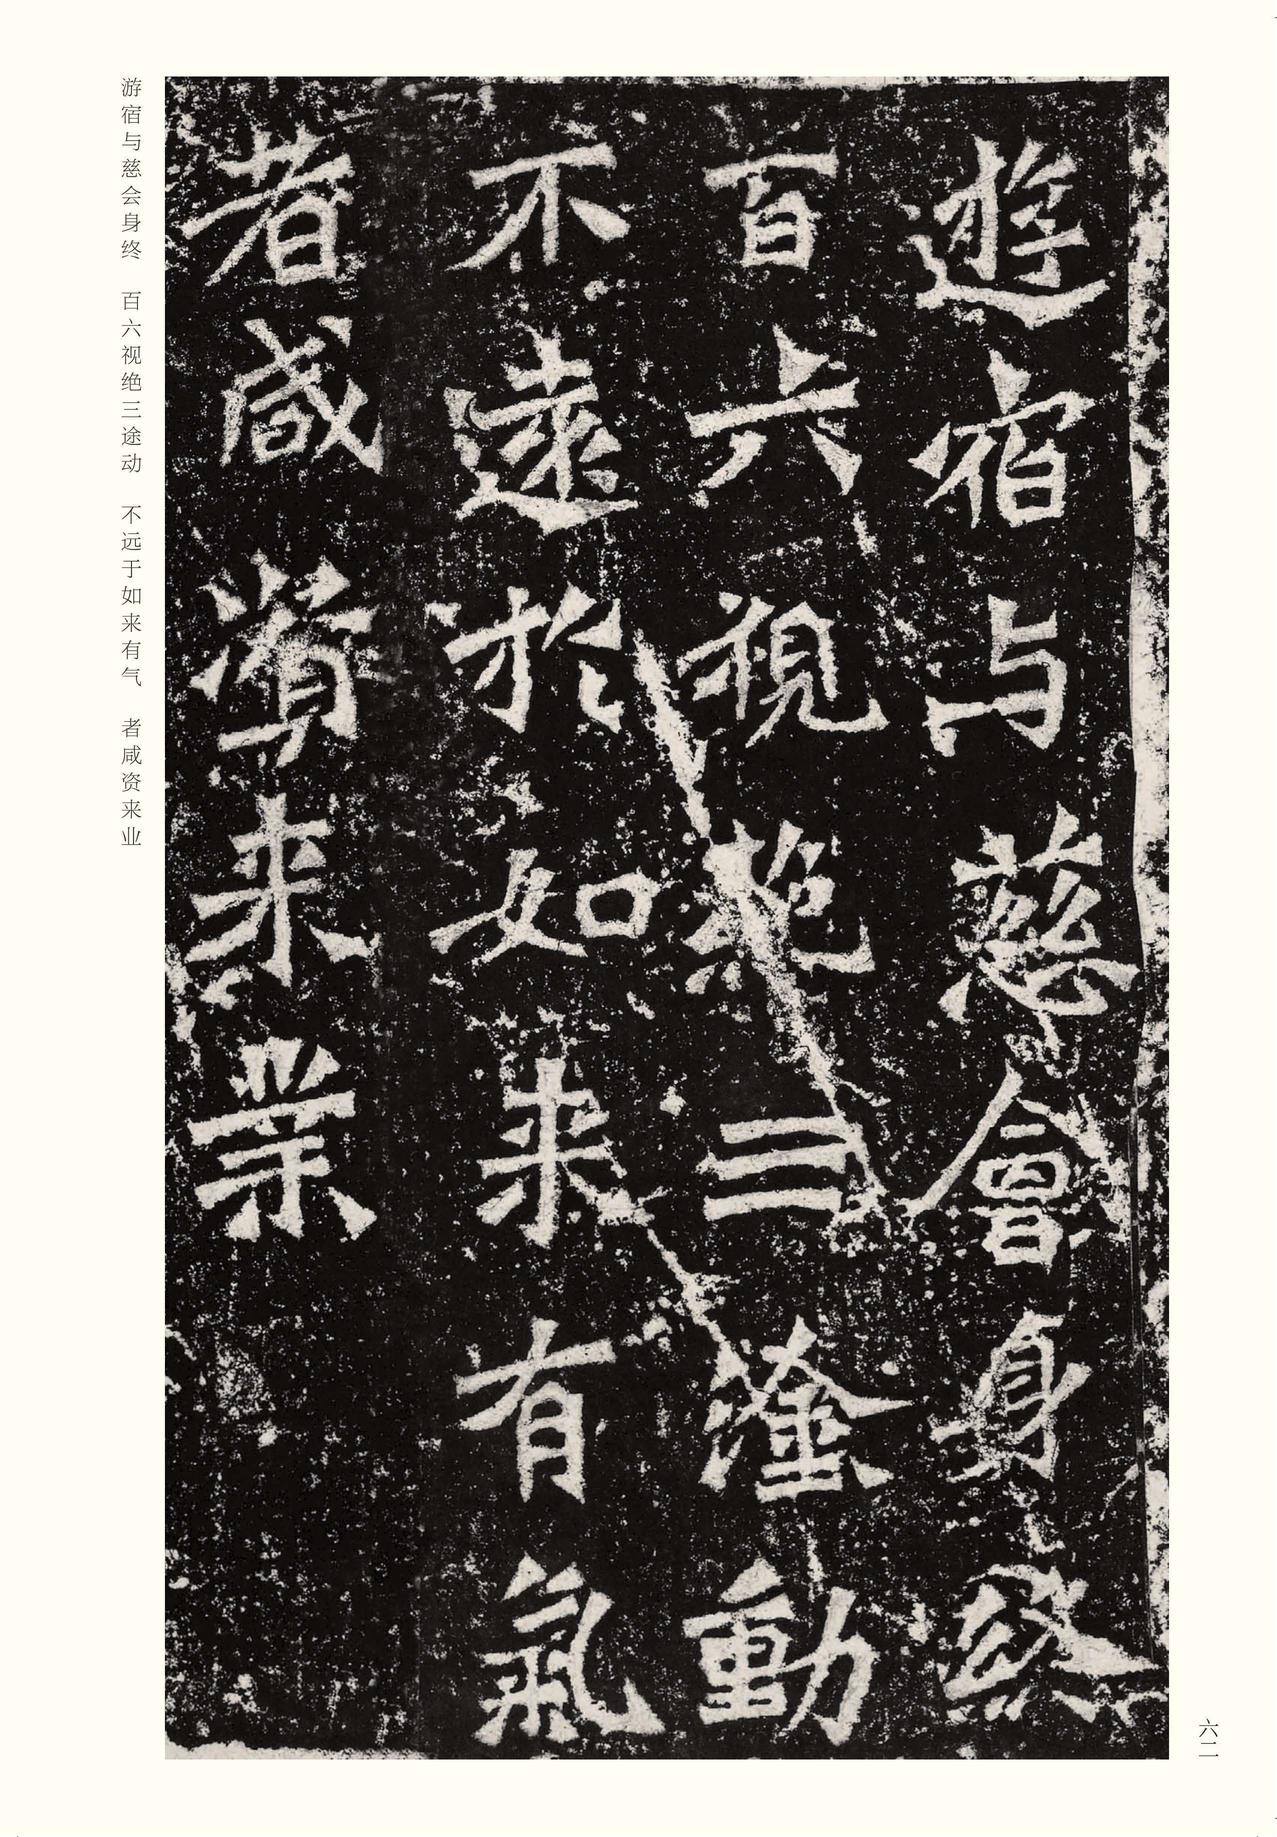 遊宿与慈會身終
百六視絶三塗動
不遠於如来有氣
者咸資来業
游宿与慈会身终　百六视绝三途动　不远于如来有气　者咸资来业
六二